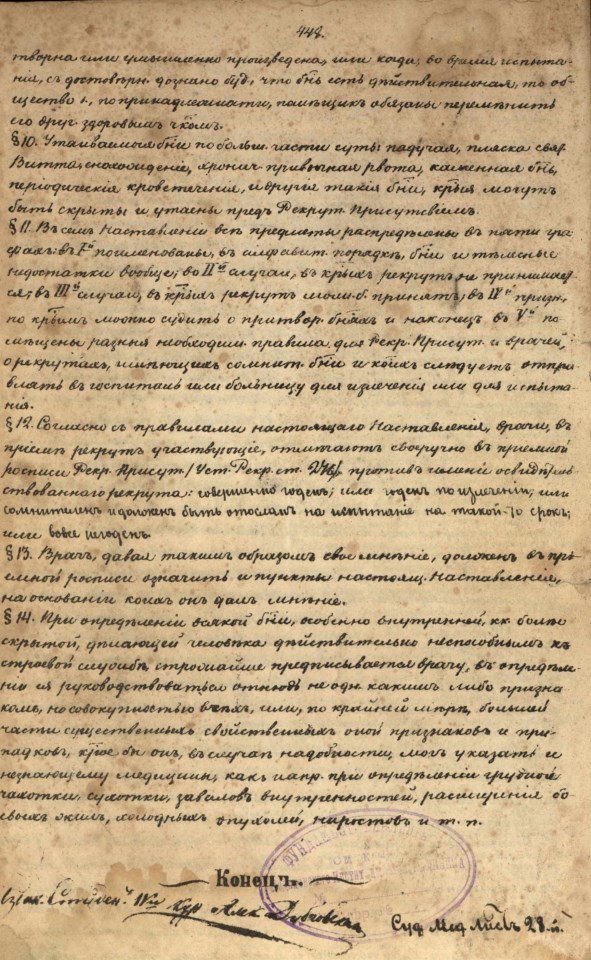 448.
творна или умышленно произведена, или когда, во время испыта-
нія, съ достовѣрн. дознано буд., что бнь есть дѣйствительная, то об-
щество и., по принадлежности, помѣщикъ обязаны перемѣнить
его друг. здоровымъ чкомъ.
§ 10. Утаиваемыя бни по больш. части суть: падучая, пляска свят.
Витта, снохожденіе, хронич. привычная рвота, каменная бнь,
періодическія кровотеченія, и другія такія бни, крыя могутъ
быть скрыты и утаены предъ Рекрут. Присутствіемъ.
§ 11. Въ семъ Наставленіи всѣ предметы распредѣлены въ пяти гра-
фахъ: въ Iй поименованы, въ алфавит. порядкѣ, бни и тѣлесные
недостатки вообще; во IIй случаи, въ крыхъ рекрутъ не принимает-
ся; въ IIIй случаи, въ крыхъ рекрутъ может б. принятъ; въ IVй призн.,
по крымъ можно судить о притвор. бняхъ и наконецъ въ Vй по-
мѣщены разныя необходим. правила для Рекр. Присут. и врачей,
о рекрутахъ, имѣющихъ сомнит. бни и коихъ слѣдуетъ отпра-
влять въ госпиталь или больницу для излеченія или для испыта-
нія.
§ 12. Согласно съ правилами настоящаго Наставленія, врачи, въ
пріемѣ рекрутъ участвующіе, отмѣчаютъ своручно въ приемной
росписи Рекр. Присут. /Уст. Рекр. ст. противъ имени освидѣтель-
ствованнаго рекрута: совершенно годенъ; или годенъ по излеченіи; или
сомнителенъ и долженъ быть отосланъ на испытаніе на такой-то срокъ;
или вовсе негоденъ.
§ 13. Врачъ, давая такимъ образомъ свое мнѣніе, долженъ въ прі-
емной росписи означить и пункты настоящ. Наставленія,
на основаніи коихъ онъ далъ мнѣніе.
§ 14. При опредѣленіи всякой бни, особенно внутренней, кк. болѣе
скрытой, дѣлающей человѣка дѣйствительно неспособнымъ къ
строевой службѣ, строжайше предписывается врачу, въ опредѣле-
ніи ея руководствоваться отнюдь не одн. какимъ либо призна
комъ, но совокупностью всѣхъ, или, по крайней мѣрѣ, большей
части существенныхъ свойственныхъ оной признаковъ и при-
падковъ, крые бы онъ, въ случаѣ надобности, могъ указать и
незнающему медицины, какъ напр. при опредѣленіи грудной
чахотки, сухотки, заваловъ внутренностей, расширенія бо-
евыхъ жилъ, холодныхъ опухолей, наростовъ и т. п.
Конецъ.
Суд. Мед. Листъ 28-й.